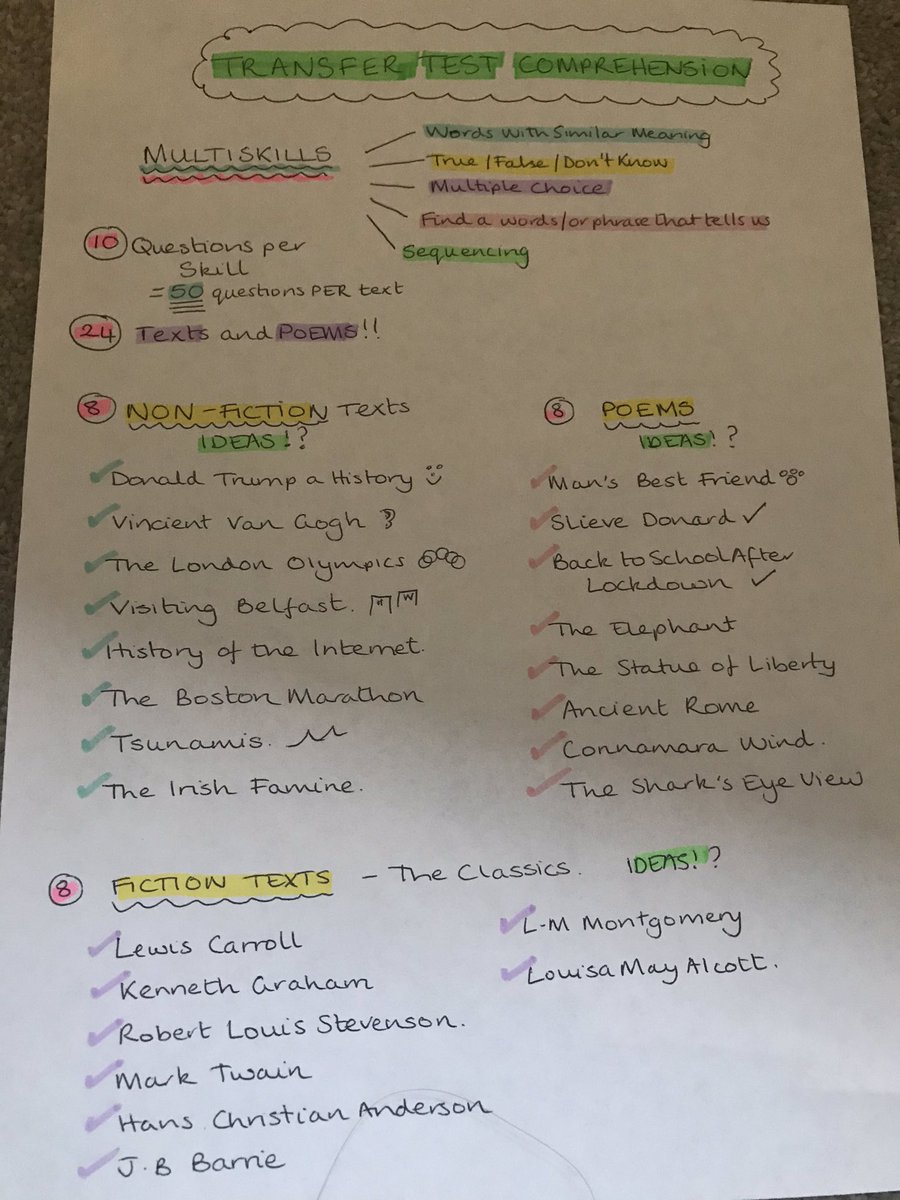 TRANSFER TEST COMPREHENSION
MULTISKILLS
Words With Similar Meaning
True/False/Don't Know
Multiple Choice
Find a words/or phrase that tells us
Sequencing
10 Questions per
Skill
= 50 questions PER text
24 Texts and POEMS!!
8 NON-FICTION Texts
IDEAS!?
Donald Trump a History
Vincient Van Gogh
The London Olympics
Visiting Belfast. H W
History of the Internet.
The Boston Marathon
Tsunamis.
The Irish Famine.
8 POEMS
IDEAS!?
Man's Best Friend
Slieve Donard
Back to School After
Lockdown
The Elephant
The Statue of Liberty
Ancient Rome
Connamara Wind.
The Shark's Eye View
8 FICTION TEXTS - The Classics. IDEAS!?
Lewis Carroll
Kenneth Graham
Robert Louis Stevenson.
Mark Twain
Hans Christian Anderson
J.B Barrie
L-M Montgomery
Louisa May Alcott.